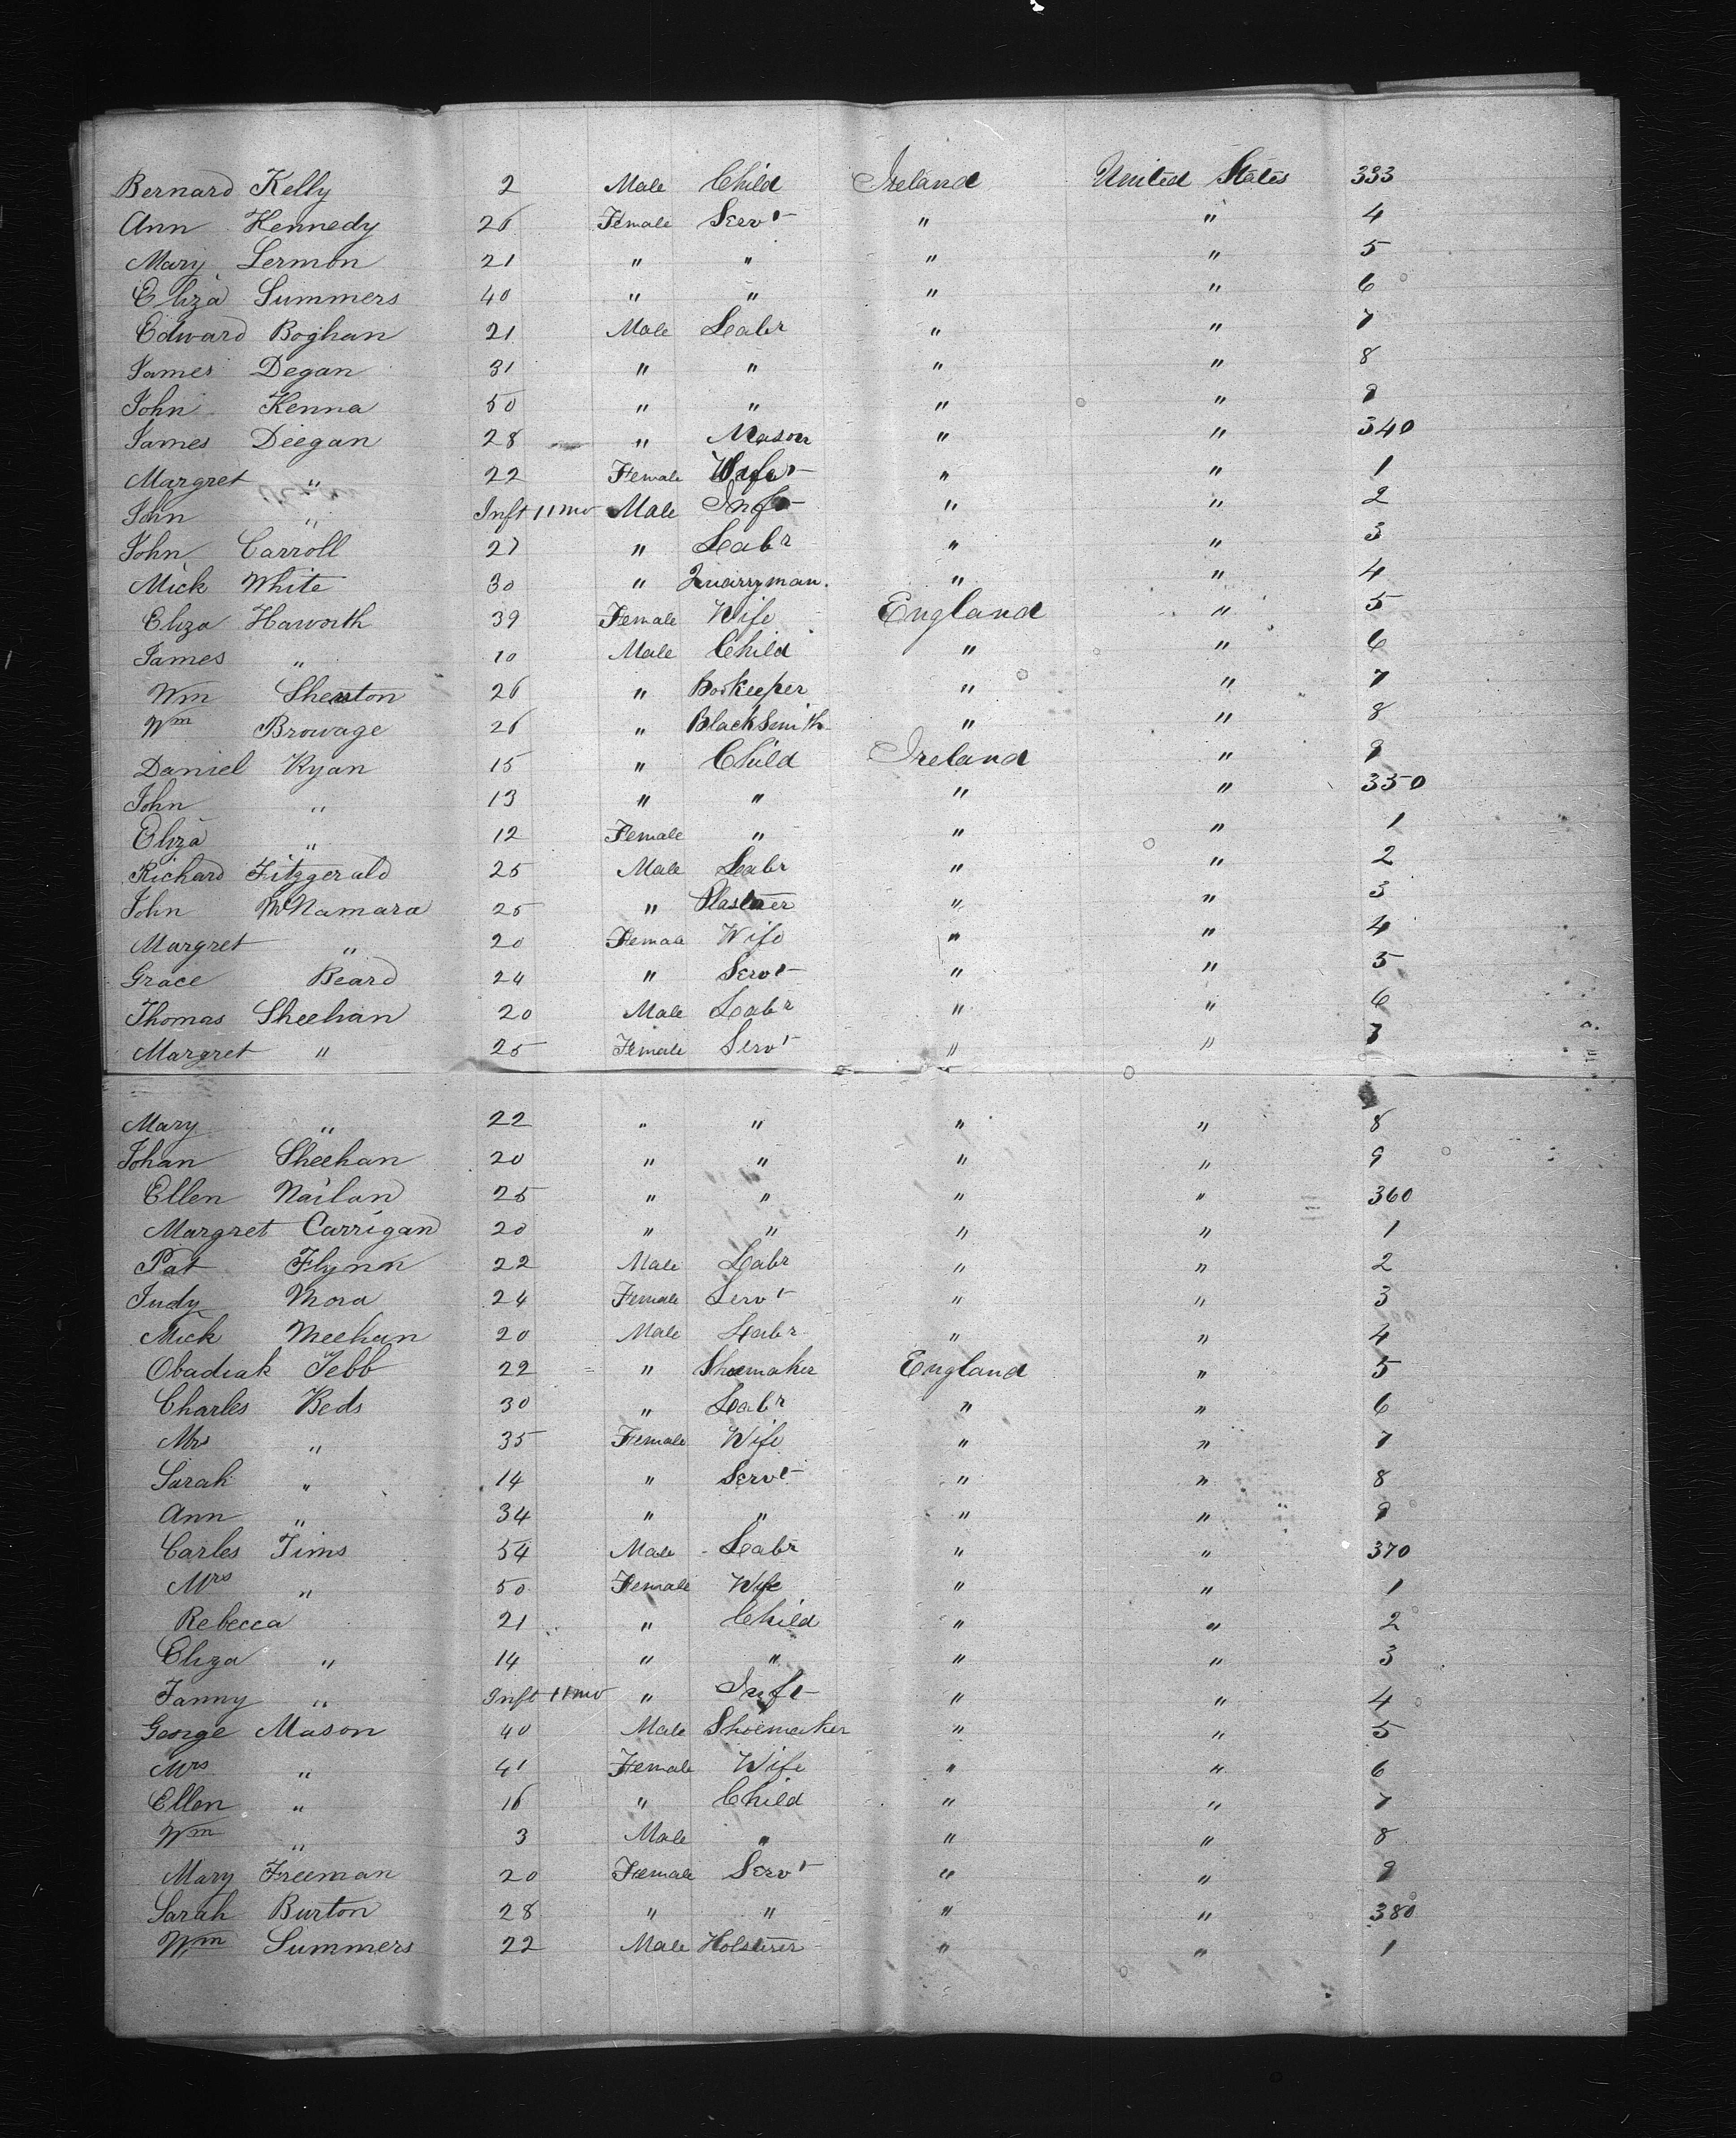 Bernard Kelly 2 Male Child Ireland United States 333
Ann Kennedy 26 Female Servt " " 4
Mary Lermon 21 " " " " 5
Eliza Summers 40 " " " " 6
Edward Boghan 21 Male Labr " " 7
James Degan 31 " " " " 8
John Kenna 50 " " " " 9
James Deegan 28 " Mason " " 340
Margret " 22 Female Wife " " 1
John " Inft 11 mo Male Inft " " 2
John Carroll 27 " Labr " " 3
Mick White 30 " Quarryman. " " 4
Eliza Haworth 39 Female Wife England " 5
James " 10 Male Child " " 6
Wm 26 " Bookeeper " " 7
Wm Browage 26 " Blacksmith " " 8
Daniel Ryan 15 " Child Ireland " 9
John " 13 " " " " 350
Eliza " 12 Female " " " 1
Richard Fitzgerald 25 Male Labr " " 2
John McNamara 25 " Plasterer " " 3
Margret " 20 Female Wife " " 4
Grace Beard 24 " Servt " " 5
Thomas Sheehan 20 Male Labr " " 6
Margret " 25 Female Servt " " 7
Mary " 22 " " " " 8
Johan Sheehan 20 " " " " 9
Ellen Nailan 25 " " " " 360
Margret Carrigan 20 " " " " 1
Pat Flynn 22 Male Labr " " 2
Judy Mora 24 Female Servt " " 3
Mick Meehan 20 Male Labr " " 4
Obadiah Jebb 22 " Shoemaker England " 5
Charles Beds 30 " Labr " " 6
Mrs " 35 Female Wife " " 7
Sarah " 14 " Servt " " 8
Ann " 34 " " " " 9
Carles Tims 54 Male Labr " " 370
Mrs " 50 Female Wife " " 1
Rebecca 21 " Child " " 2
Eliza " 14 " " " " 3
Fanny " Inft 11 mo " Inft " " 4
George Mason 40 Male Shoemaker " " 5
Mrs " 41 Female Wife " " 6
Ellen " 16 " Child " " 7
Wm " 3 Male " " " 8
Mary Freeman 20 Female Servt " " 9
Sarah Burton 28 " " " " 380
Wm Summers 22 Male Holsterer " " 1